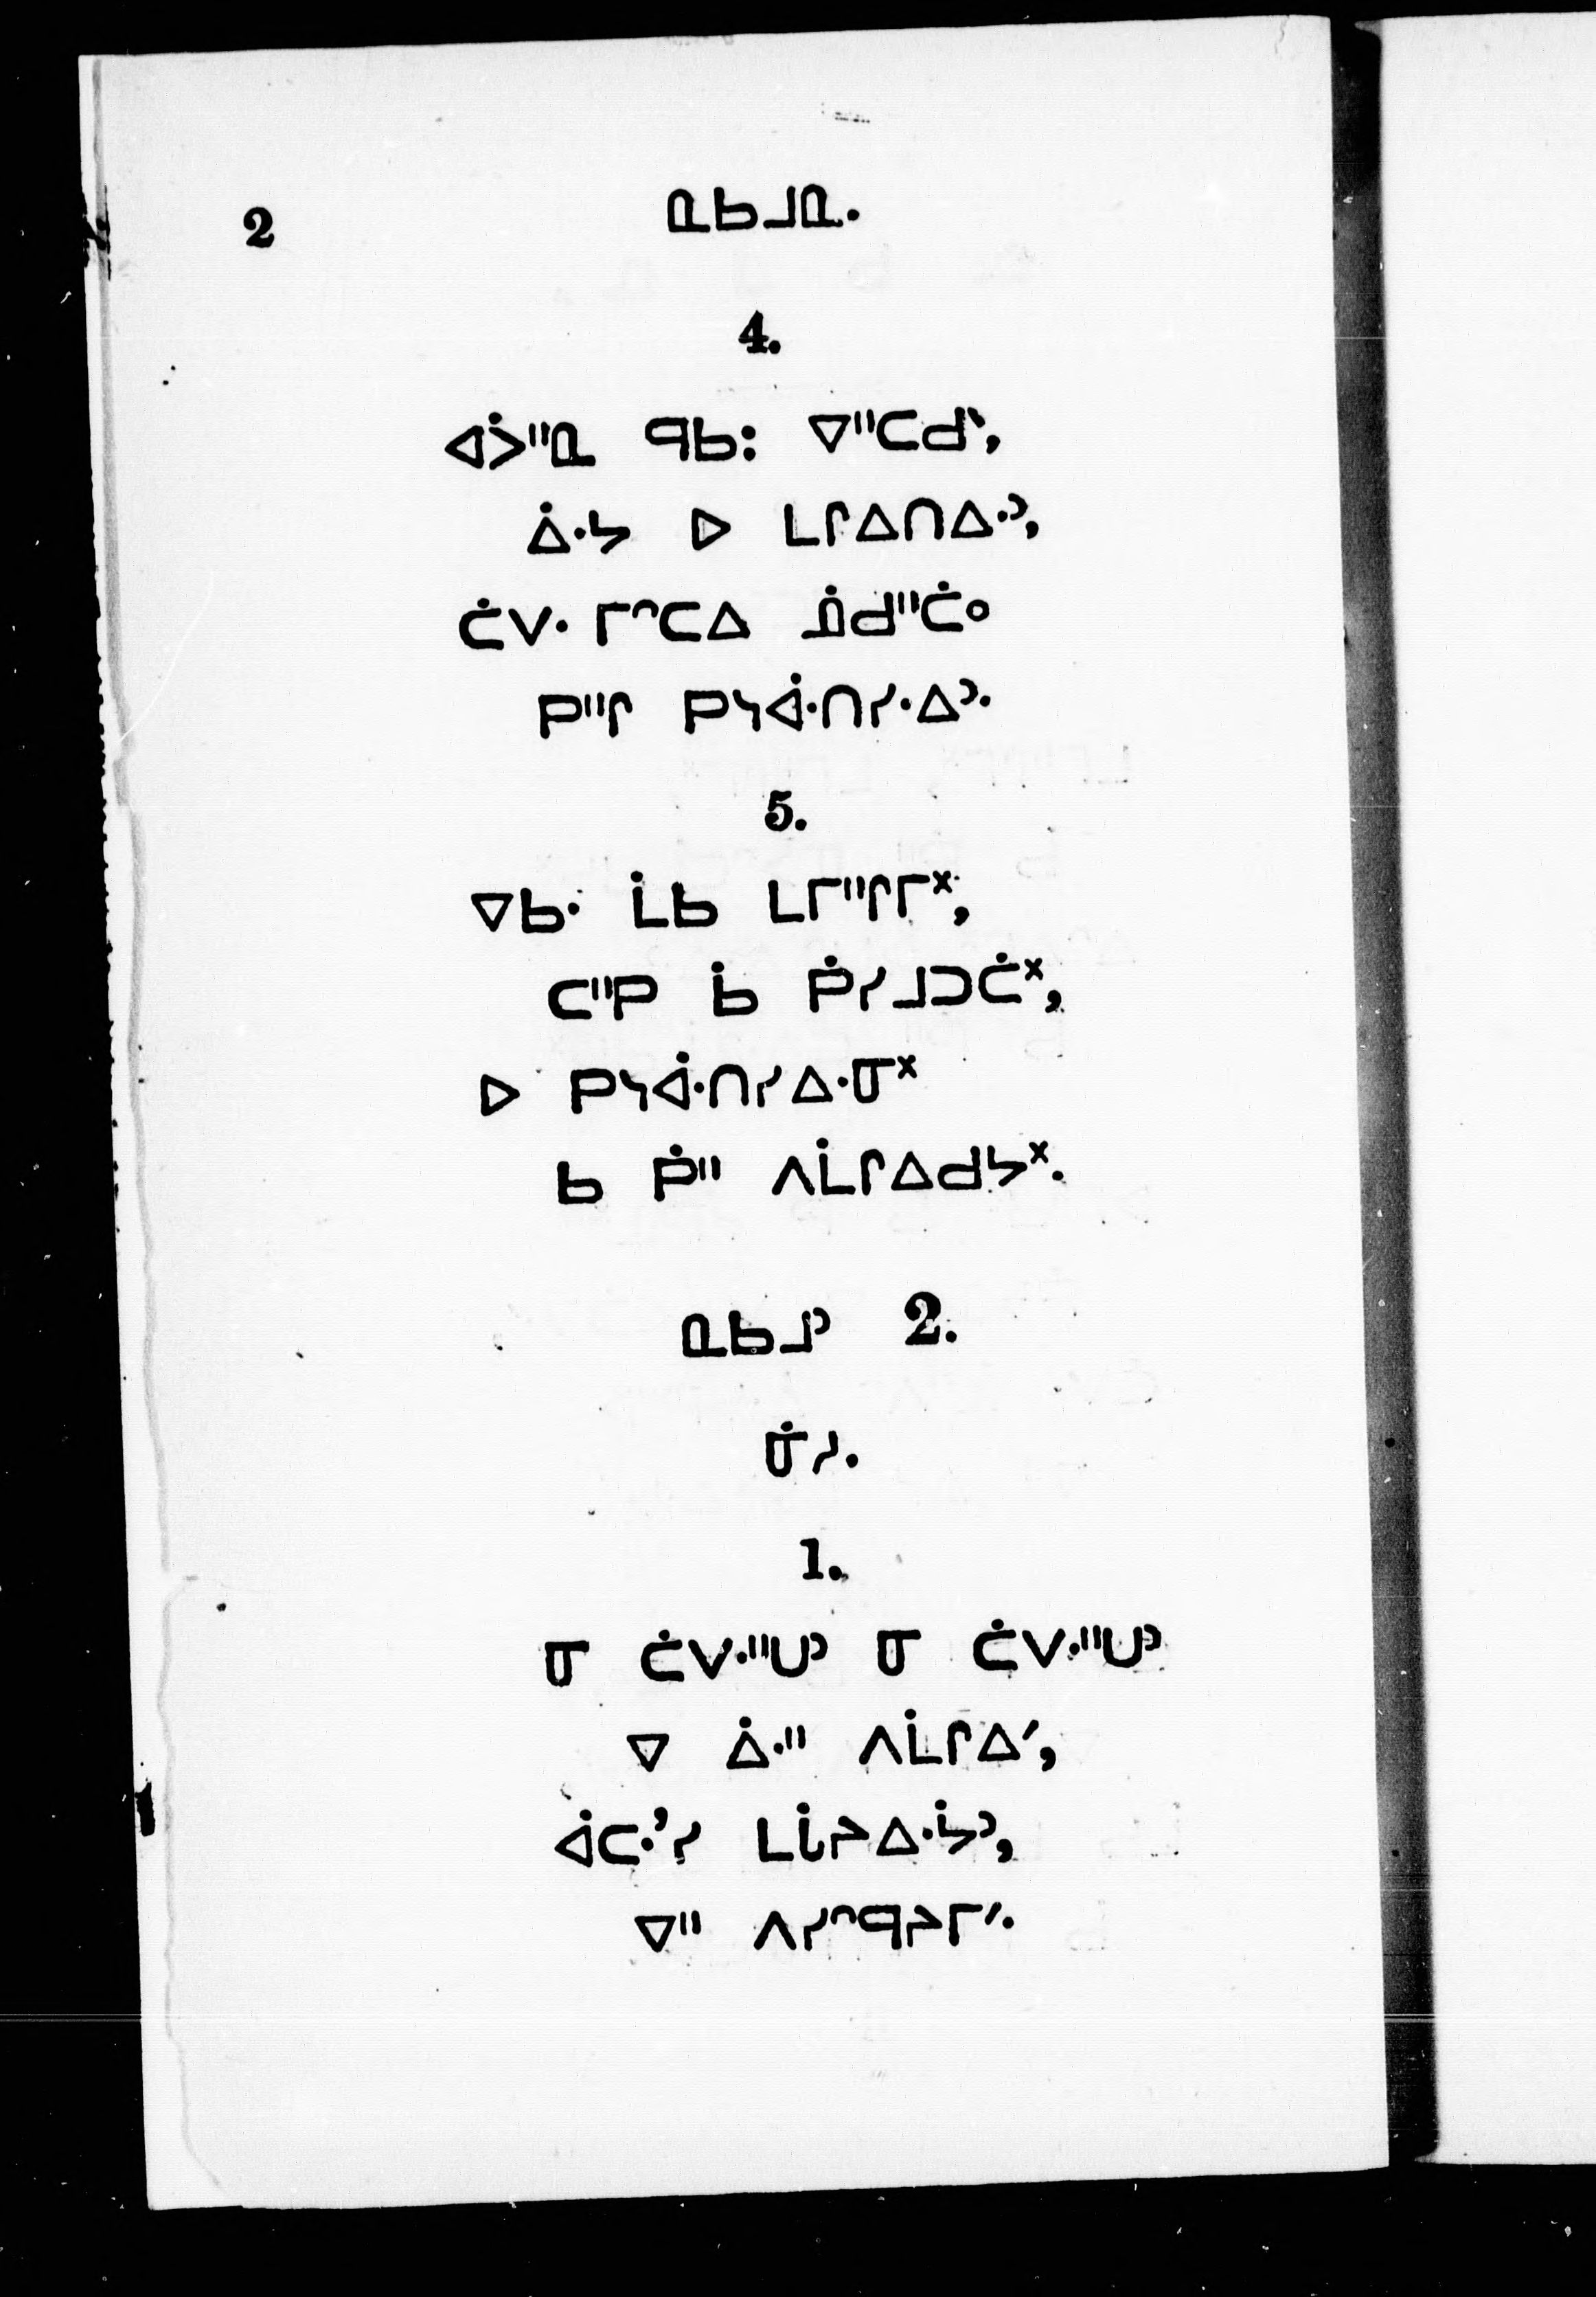 2
ᓇᑲᒧᓇ.
4.
ᐊᐴᐦᓇ ᑫᑲ: ᐁᐦᑕᑯᐠ,
ᐄᐧᔭ ᐅ ᒪᒋᐃᑎᐃᐧᐣ,
ᑖᐯᐧ ᒥᐢᑕᐃ ᓈᑯᐦᑖᐤ
ᑭᐦᒋ ᑭᓴᐋᐧᑎᓯᐧᐃᐣ.
5.
ᐁᑲᐧ ᒫᑲ ᒪᒥᐦᒋᒥᕽ,
ᑕᐦᑭ ᑳ ᑮᓯ ᒧᑐᑖᕽ,
ᐅ ᑭᓴᐋᐧᑎᓯᐃᐧᓂᕽ
ᑲ ᑮᐦ ᐱᒫᒋᐃᑯᔭᕽ.
ᓇᑲᒧᐣ 2.
ᓃᓱ.
1.
ᓂ ᑖᐯᐧᐦᑌᐣ ᓂ ᑖᐯᐧᐦᑌᐣ
ᐁ ᐄᐧᐦ ᐱᒫᒋᐃᐟ,
ᐋᑕᐧᐟᓯ ᒪᒑᔨᐃᐧᔮᐣ,
ᐁᐦ ᐱᓯᐢᑫᔨᒥᐟ.